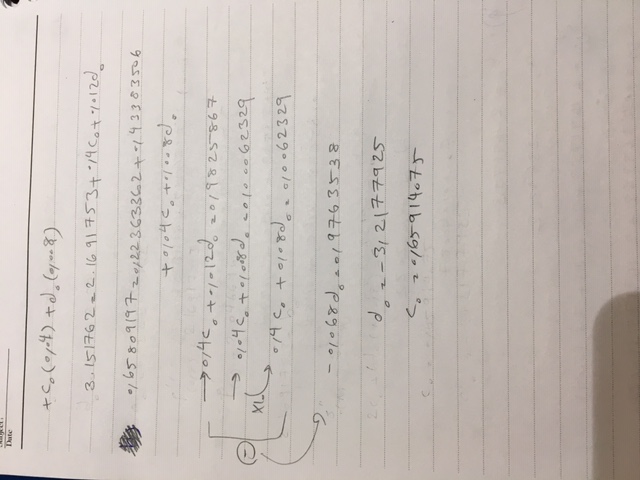 Subject:
Date
+ c₀(0,04) + d₀(0,008)
3.151762 = 2.1691753 + 0,4c₀ + 0,012d₀
0,65809197 = 0,22363362 + 0,43383506
+ 0,04c₀ + 0,008d₀
→ 0,4c₀ + 0,012d₀ = 0,9825867
→ 0,04c₀ + 0,008d₀ = 0,00062329
0,4c₀ + 0,08d₀ = 0,0062329
-0,068d₀ = 0,9763538
d₀ = -3,2177925
c₀ = 0,65914075